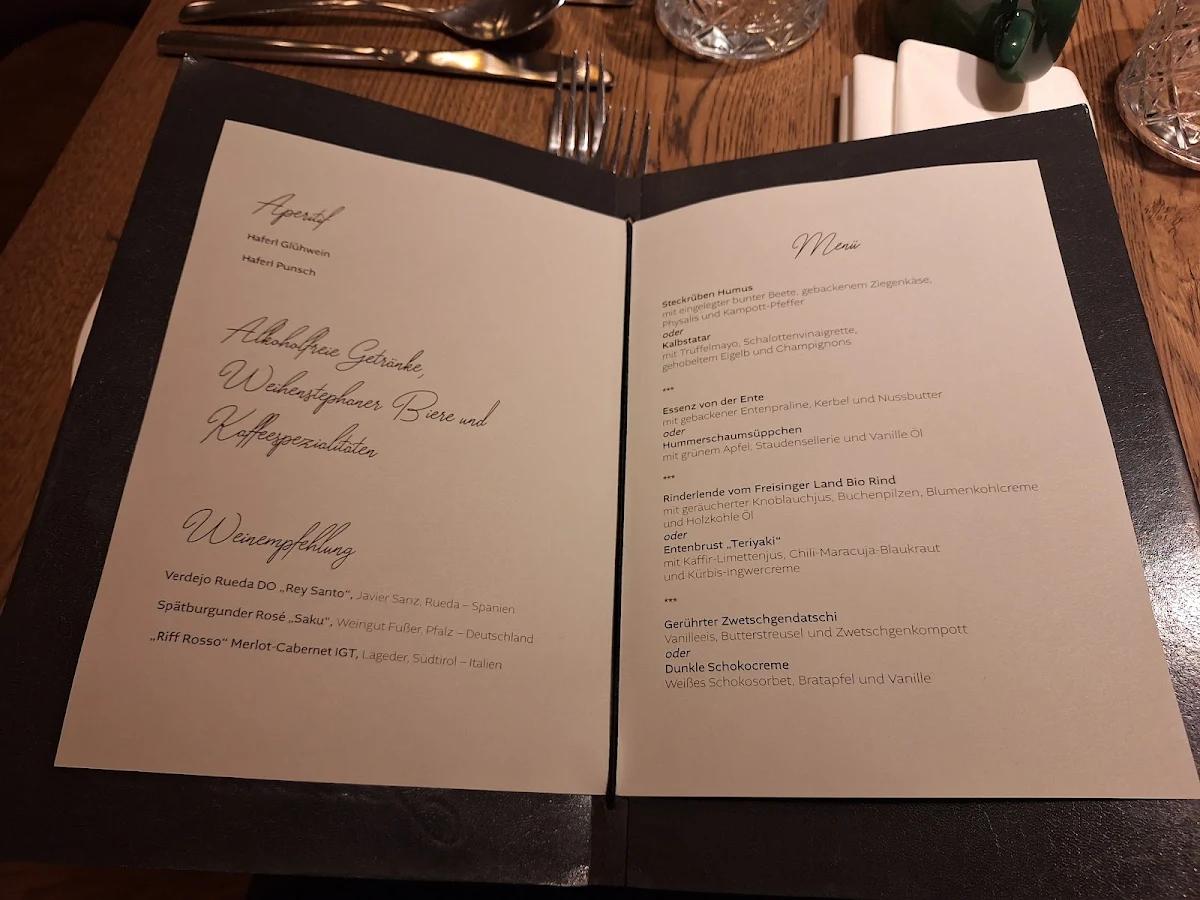 Aperitif
Haferl Glühwein
Haferl Punsch
Alkoholfreie Getränke,
Weihenstephaner Biere und
Kaffeespezialitäten
Weinempfehlung
Verdejo Rueda DO „Rey Santo“, Javier Sanz, Rueda – Spanien
Spätburgunder Rosé „Saku“, Weingut Fußer, Pfalz – Deutschland
„Riff Rosso“ Merlot-Cabernet IGT, Lageder, Südtirol – Italien
Menü
Steckrüben Humus
mit eingelegter bunter Beete, gebackenem Ziegenkäse,
Physalis und Kampott-Pfeffer
oder
Kalbstatar
mit Trüffelmayo, Schalottenvinaigrette,
gehobeltem Eigelb und Champignons
***
Essenz von der Ente
mit gebackener Entenpraline, Kerbel und Nussbutter
oder
Hummerschaumsüppchen
mit grünem Apfel, Staudensellerie und Vanille Öl
***
Rinderlende vom Freisinger Land Bio Rind
mit geräucherter Knoblauchjus, Buchenpilzen, Blumenkohlcreme
und Holzkohle Öl
oder
Entenbrust „Teriyaki“
mit Kaffir-Limettenjus, Chili-Maracuja-Blaukraut
und Kürbis-ingwercreme
***
Gerührter Zwetschgendatschi
Vanilleeis, Butterstreusel und Zwetschgenkompott
oder
Dunkle Schokocreme
Weißes Schokosorbet, Bratapfel und Vanille